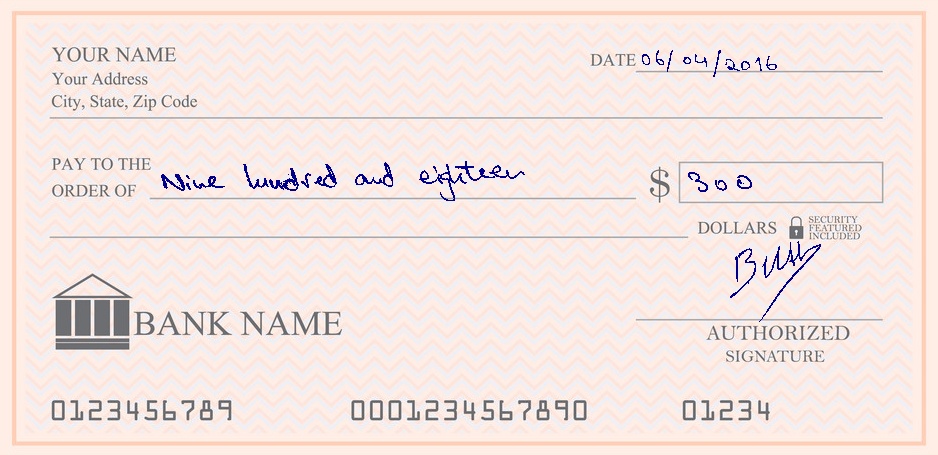 YOUR NAME
Your Address
City, State, Zip Code
DATE 06/04/2016
PAY TO THE
ORDER OF Nine hundred and eighteen $ 300
DOLLARS
SECURITY
FEATURED
INCLUDED
BANK NAME
AUTHORIZED
SIGNATURE
0123456789 0001234567890 01234